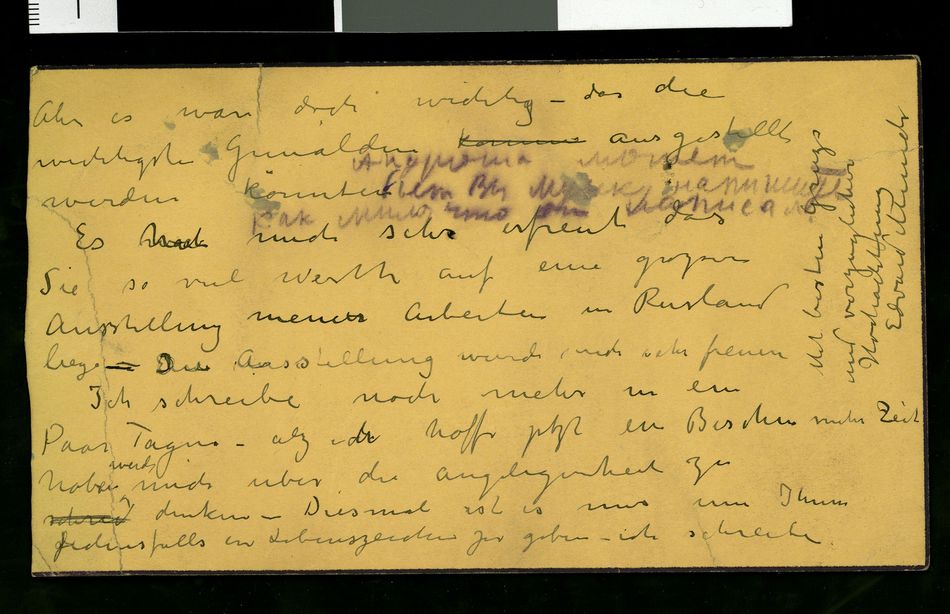 Aber es ware doch wichtig – das die
wichtigste Gemälden komme ausgestellt
werden könnten
Es hat mich sehr erfreut das
Sie so viel Werth auf eine grosse
Ausstellung meiner Arbeiten in Rusland
lege – Die Ausstellung wurde mich sehr freuen
Ich schreibe noch mehr in ein
Paar Tagen – als ich hoffe jetzt ein Bischen mehr Zeit
haben werde mich uber die angelegenheit zu
denken – Diesmal ist es nur um Ihnen
jedensfalls ein Lebenszeichen zu geben – ich schreibe
Mit besten Gruss
und vorzuglicher
Hochachtung
Edvard Munch
может
Вы
как